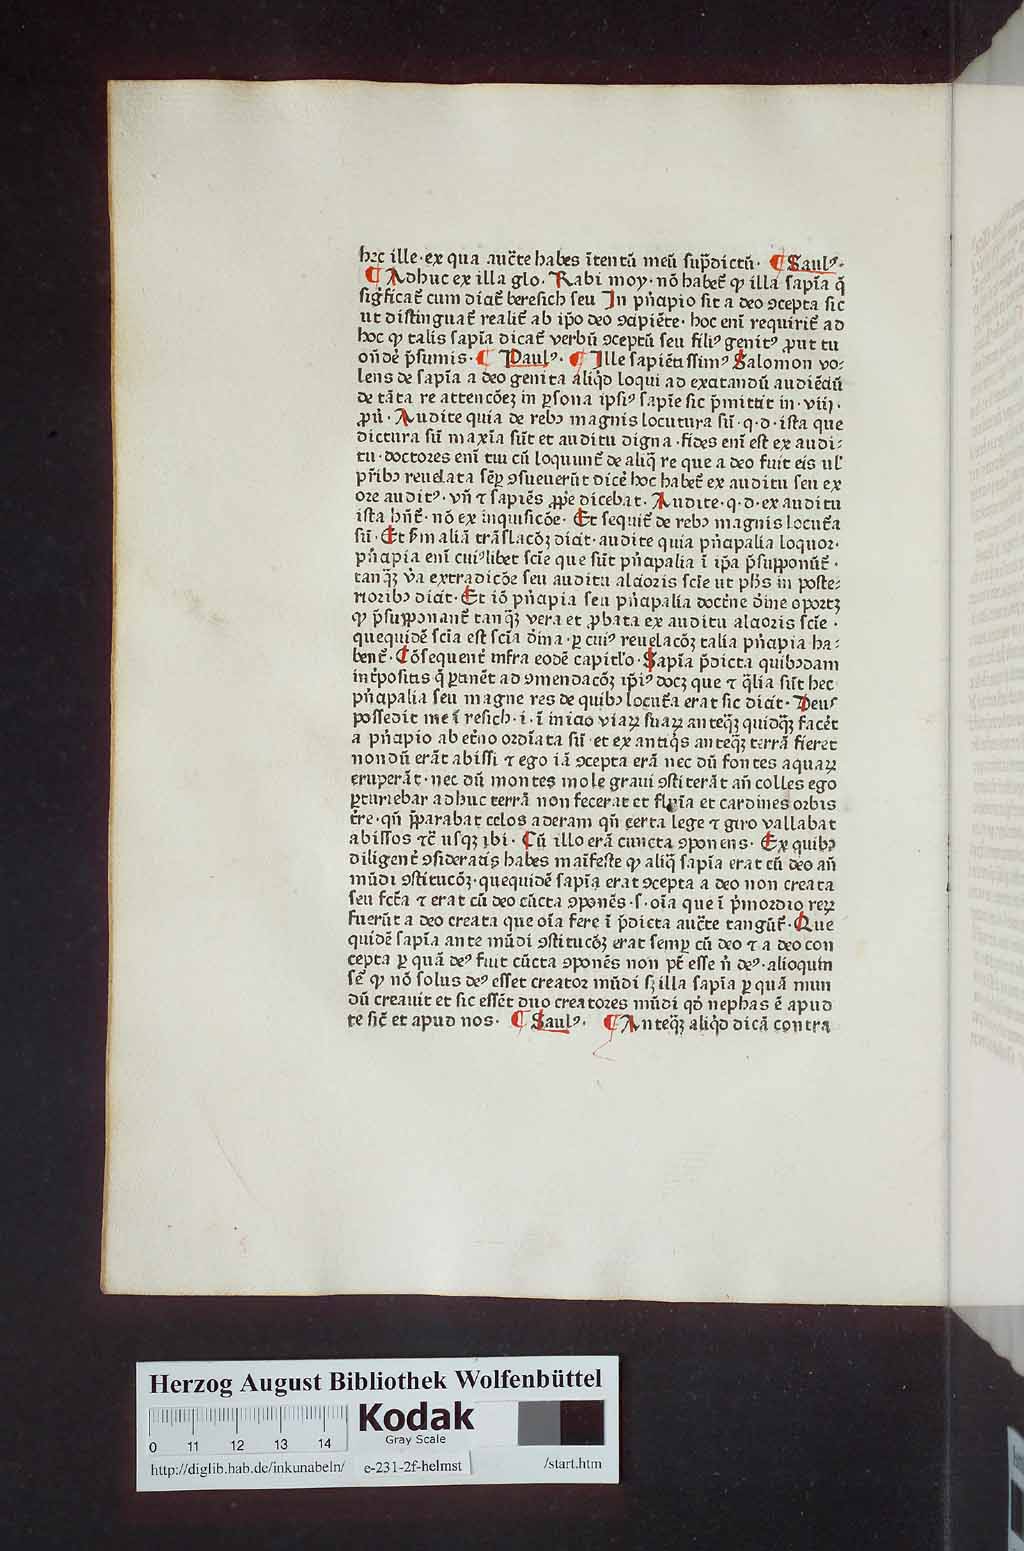 hec ille·ex qua auct̄e habes ītentū meū sup̄dictū· ¶ Saulꝰ·
¶ Adhuc ex illa glo· Rabi moy· nō habet̄ ꝙ illa sapīa q̄
significat̄ cum dicat̄ beresich seu In pn̄cipio sit a deo ↄcepta sic
ut distinguat̄ realit̄ ab ip̄o deo ↄcipiēte· hoc enī requirit̄ ad
hoc ꝙ talis sapīa dicat̄ verbū ↄceptū seu filiꝰ genitꝰ ꝓut tu
on̄dē p̄sumis· ¶ Paulꝰ· ¶ Ille sapiētissimꝰ Salomon vo⸗
lens de sapīa a deo genita aliq̄d loqui ad excitandū audiēdū
de tāta re attencōeꝫ in ꝑsona ipsiꝰ sapīe sic p̄mittit in· viij·
ꝓū· Audite quia de rebꝫ magnis locutura sū· q·d· ista que
dictura sū maxīa sūt et auditu digna·fides enī est ex audi⸗
tu·doctores enī tui cū loquunt̄ de aliq̄ re que a deo fuit eis ul̓
pr̄ibꝫ reuelata semꝑ ↄsueuerūt dicē hoc habet̄ ex auditu seu ex
ore auditꝰ· vn̄ ⁊ sapiēs ꝓṗe dicebat· Audite·q·d·ex auditu
ista hn̄t̄· nō ex inquisicōe· Et sequit̄ de rebꝫ magnis locut̄a
sū· Et s̄m aliā trāslacōꝫ dicit· audite quia pn̄cipalia loquor·
pn̄cipia enī cuiꝰlibet scīe que sūt pn̄cipalia ī ip̄a p̄supponūt̄·
tanq̄ꝫ v̄a ex tradicōe seu auditu alcioris scīe ut ph̄s in poste⸗
rioribꝫ dicit· Et iō pn̄cipia seu pn̄cipalia doctr̄ne d̓ine oportꝫ
ꝙ p̄supponant̄ tanq̄ꝫ vera et ꝓbata ex auditu alcioris scīe·
quequidē scīa est scīa d̓ina· ꝑ cuiꝰ reuelacōꝫ talia pn̄cipia ha⸗
bent̄· Cōsequent̄ infra eodē capitl̓o· Sapīa p̄dicta quibꝫdam
int̄positis q̄ ꝑtinēt ad ↄmendacōꝫ ip̄iꝰ docꝫ que ⁊ q̄lia sūt hec
pn̄cipalia seu magne res de quibꝫ locut̄a erat sic dicit· Deus
possedit me ī resich·i· ī inicio viaꝝ suaꝝ anteq̄ꝫ quidq̄ꝫ facēt
a pn̄cipio ab et̄no ordīata sū·et ex antiq̄s anteq̄ꝫ terrā fieret
nondū erāt abissi ⁊ ego iā ↄcepta erā nec dū fontes aquaꝝ
eruperāt·nec dū montes mole graui ↄstiterāt an̄ colles ego
ꝑturiebar adhuc terrā non fecerat et flu͞ia et cardines orbis
t̄re·qn̄ p̄parabat celos aderam qn̄ certa lege ⁊ giro vallabat
abissos ⁊c̄ usqꝫ ibi· Cū illo erā cuncta ↄponens· Ex quibꝫ
diligent̄ ↄsideratis habes maīfeste ꝙ aliq̄ sapīa erat cū deo an̄
mūdi ↄstitucōꝫ·quequidē sapīa erat ↄcepta a deo non creata
seu fct̄a ⁊ erat cū deo cūcta ↄponēs·s·oīa que ī p̄mordio reꝝ
fuerūt a deo creata que oīa fere ī p̄dicta auct̄e tangūt̄· Que
quidē sapīa ante mūdi ↄstitucōꝫ erat semꝑ cū deo ⁊ a deo con
cepta ꝑ quā deꝰ fuit cūcta ↄponēs non pt̄ esse n̄ deꝰ·alioquin
sē ꝙ nō solus deꝰ esset creator mūdi sꝫ illa sapīa ꝑ quā mun
dū creauit et sic essēt duo creatores mūdi qd̓ nephas ē apud
te sic̄ et apud nos· ¶ Saulꝰ· ¶ Anteq̄ꝫ aliq̄d dicā contra
Herzog August Bibliothek Wolfenbüttel
0 11 12 13 14
Kodak
Gray Scale
http://diglib.hab.de/inkunabeln/ e-231-2f-helmst /start.htm